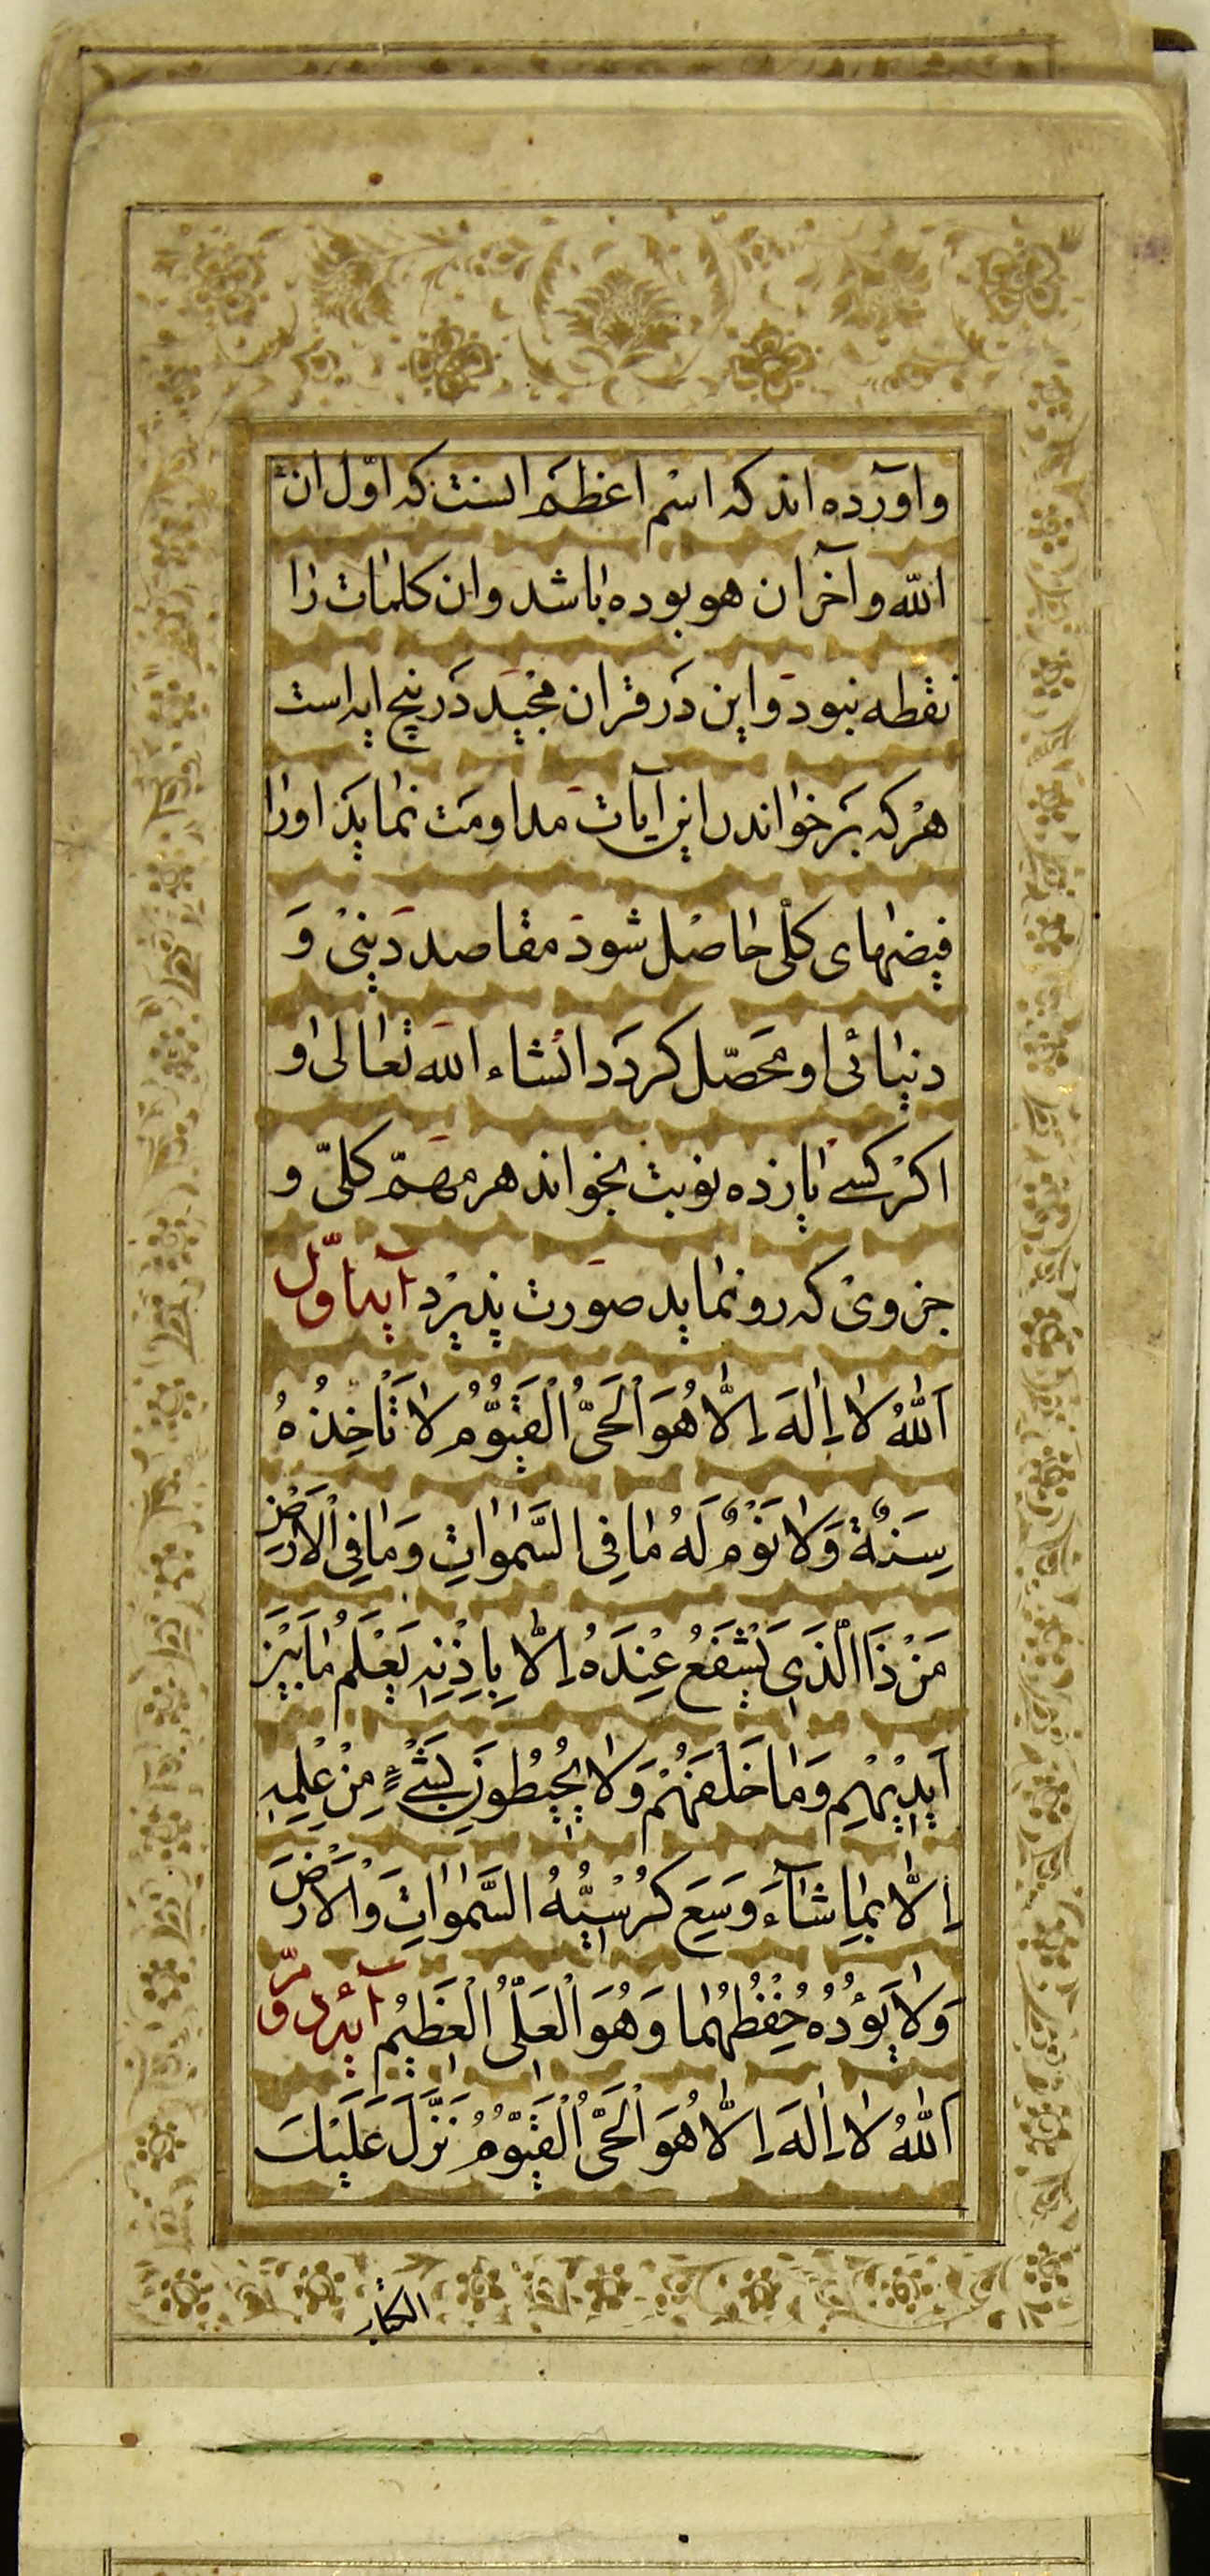 و اورده اند که اسم اعظم انست که اوّل ان
الله و آخر ان هو بوده باشد و ان کلمات را
نقطه نبود و این در قران مجید در پنج ایه است
هر که بر خواندن این آیات مداومت نماید او را
فیضهای کلّی حاصل شود مقاصد دینی و
دنیائی او محصّل کردد انشاء الله تعالی و
اکر کسی یازده نوبت بخواند هر مهمّ کلّی و
جزوی که رو نماید صورت پذیرد آیه اوّل
اَللّٰهُ لا اِلٰهَ اِلّا هُوَ الْحَیُّ الْقَیُّومُ لا تَاْخُذُهُ
سِنَةٌ وَلا نَوْمٌ لَهُ مٰا فِی السَّمٰوٰاتِ وَمٰا فِی الْاَرْضِ
مَنْ ذَا الَّذِی یَشْفَعُ عِنْدَهُ اِلّا بِاِذْنِهِ یَعْلَمُ مٰا بَیْنَ
اَیْدِیْهِمْ وَمٰا خَلْفَهُمْ وَلا یُحِیطُونَ بِشَیْءٍ مِنْ عِلْمِهِ
اِلّا بِمٰا شٰآءَ وَسِعَ کُرْسِیُّهُ السَّمٰوٰاتِ وَالْاَرْضَ
وَلا یَؤُدُهُ حِفْظُهُمٰا وَهُوَ الْعَلِیُّ الْعَظِیمُ آیه دوّم
اَللّٰهُ لا اِلٰهَ اِلّا هُوَ الْحَیُّ الْقَیُّومُ نَزَّلَ عَلَیْكَ
الکتاب